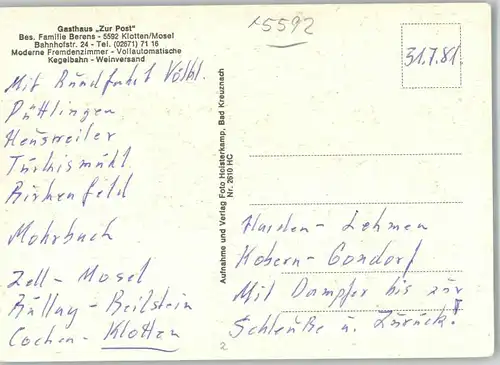 Gasthaus „Zur Post"
Bes. Familie Berens - 5592 Klotten/Mosel
Bahnhofstr. 24 - Tel. (02671) 71 16
Moderne Fremdenzimmer - Vollautomatische
Kegelbahn - Weinversand
Mit Rundfahrt Völkl.
Püttlingen
Heusweiler
Türkismühl
Birkenfeld
Mohrbach
Zell - Mosel
Bullay - Beilstein
Cochen - Klotten
Aufnahme und Verlag Foto Holsterkamp, Bad Kreuznach
Nr. 2610 HC
5592
31.7.81.
Lehmen
Kobern - Gondorf
Mit Dampfer bis zur
Schleuße u. Zurück!
2